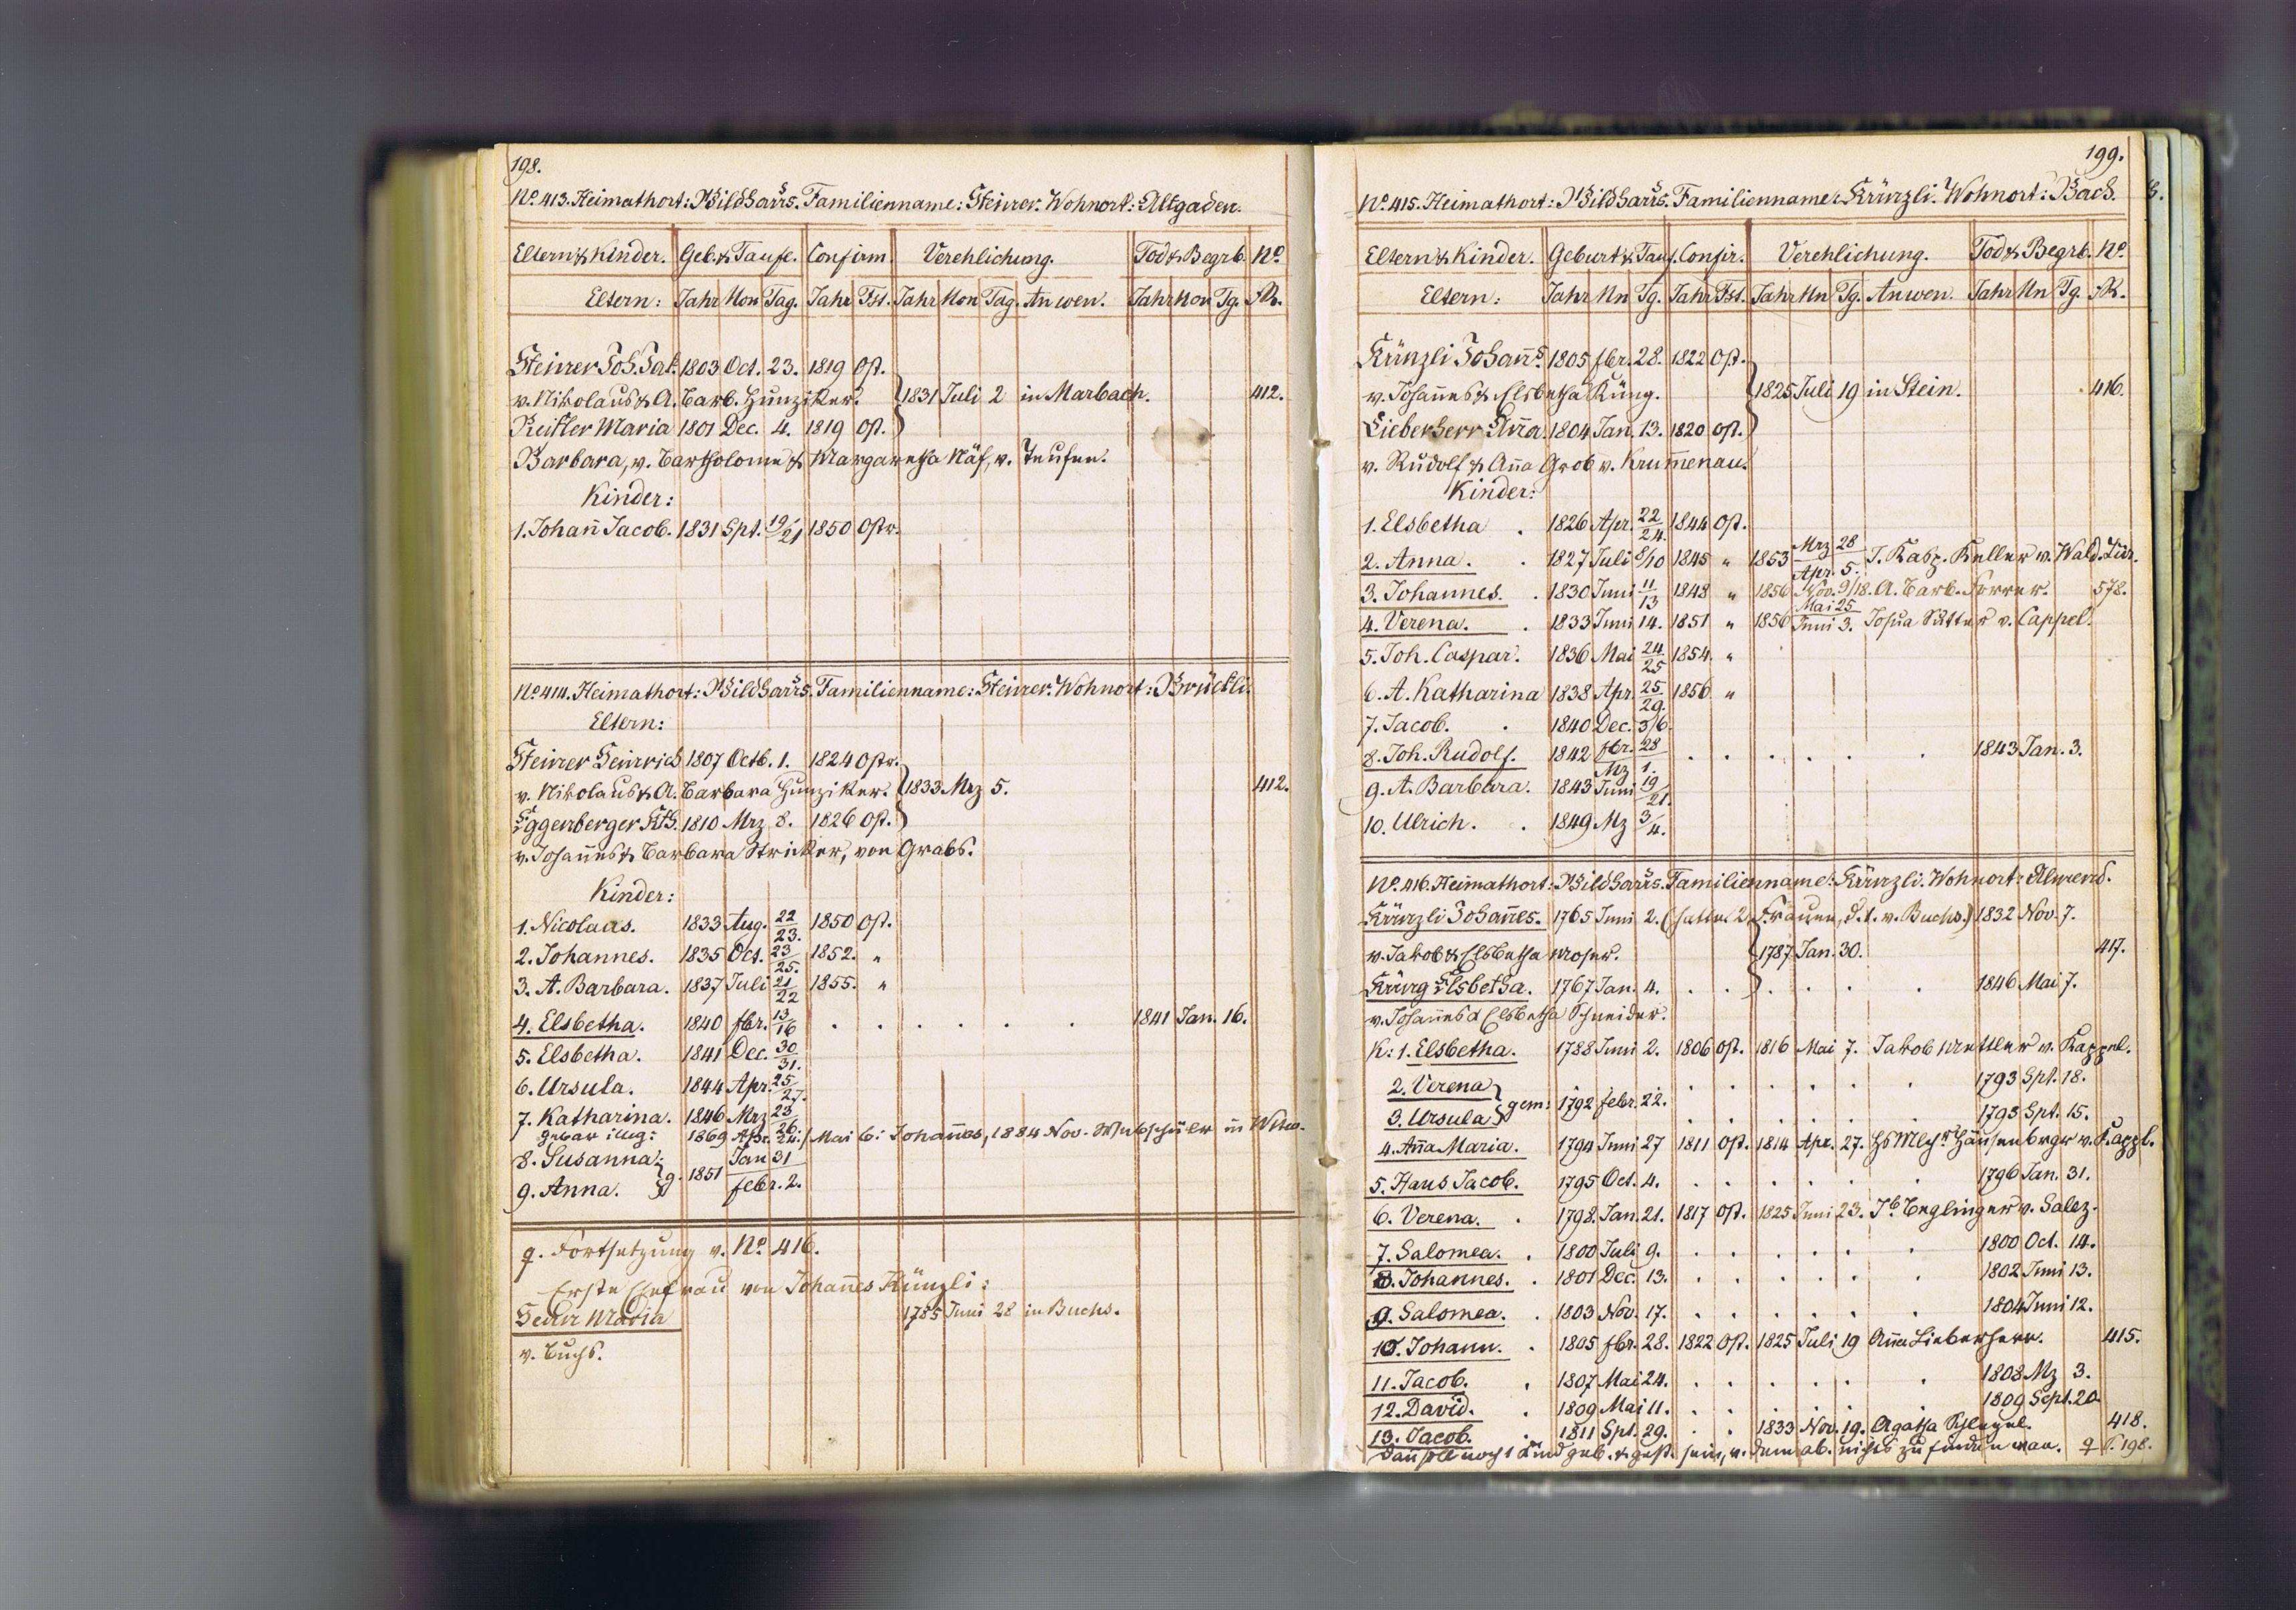 198.
No. 413. Heimathort: Wildhaus. Familienname: Steiner. Wohnort: Altgaden.
Eltern & Kinder. Geb. & Taufe. Confirm. Verehlichung. Tod & Begrb. No.
Eltern: Jahr Mon Tag. Jahr Fst. Jahr Mon Tag. An wen. Jahr Mon Tg. R.
Steiner Joh. Jak. 1803 Oct. 23. 1819 Ost.
v. Nikolaus & A. Barb. Hunziker. 1831 Juli 2 in Marbach. 412.
Maria 1801 Dec. 4. 1819 Ost.
Barbara, v. Bartholome & Margaretha Näf, v. Teufen.
Kinder:
1. Johañ Jacob. 1831 Spt. 19/21 1850 Ostr.
No. 414. Heimathort: Wildhaus. Familienname: Steiner. Wohnort: Brückli.
Eltern:
Steiner Heinrich 1807 Octb. 1. 1824 Ostr.
v. Nikolaus & A. Barbara Hunziker. 1833 Mrz 5. 412.
Eggenberger Kth. 1810 Mrz 8. 1826 Ost.
v. Johañes & Barbara Stricker, von Grabs.
Kinder:
1. Nicolaus. 1833 Aug. 22/23. 1850 Ost.
2. Johannes. 1835 Oct. 23/25. 1852. "
3. A. Barbara. 1837 Juli 21/22 1855. "
4. Elsbetha. 1840 fbr. 13/16 . . . . . . 1841 Jan. 16.
5. Elsbetha. 1841 Dec. 30/31.
6. Ursula. 1844 Apr. 25/27.
7. Katharina. 1846 Mrz 23/26.
gebar illeg: 1869 Apr. 24./Mai 6: Johañes, 1884 Nov. in
8. Susanna. Jan 31
g. 1851
9. Anna. febr. 2.
q. Fortsetzung v. No. 416.
Erste Ehefrau von Johañes Künzli:
Maria 1785 Juni 28 in Buchs.
v. Buchs.
199.
No. 415. Heimathort: Wildhaus. Familienname: Künzli. Wohnort: Bach.
Eltern & Kinder. Geburt & Tauf. Confir. Verehlichung. Tod & Begrb. No.
Eltern: Jahr Mn Tg. Jahr Fst. Jahr Mn Tg. An wen. Jahr Mn Tg. R.
Künzli Johañs 1805 fbr. 28. 1822 Ost.
v. Johañes & Elsbetha Küng. 1825 Juli 19 in Stein. 416.
Lieberherr Aña. 1804 Jan. 13. 1820 Ost.
v. Rudolf & Aña Grob v. Krum̃enau.
Kinder:
1. Elsbetha . 1826 Apr. 22/24. 1844 Ost.
2. Anna. . 1827 Juli 8/10 1845 " 1853 Mrz 28/Apr. 5. J. Kasp. Keller v. Wald. Zür.
3. Johannes. . 1830 Juni 11/13 1848 " 1856 Nov. 9/18. A. Barb. Forrer. 578.
4. Verena. . 1833 Juni 14. 1851 " 1856 Mai 25/Juni 3. Josua Sutter v. Cappel.
5. Joh. Caspar. 1836 Mai 24/25 1854. "
6. A. Katharina 1838 Apr. 25/29. 1856 "
7. Jacob. . 1840 Dec. 3/6.
8. Joh. Rudolf. 1842 fbr. 28/Mz 1. . . . . . . 1843 Jan. 3.
9. A. Barbara. 1843 Juni 19/21.
10. Ulrich. . 1849 Mz 3/4.
No. 416. Heimathort: Wildhaus. Familienname: Künzli. Wohnort: Almend.
Künzli Johañes. 1765 Juni 2. (hatte 2 Frauen, d. 1. v. Buchs.) 1832 Nov. 7.
v. Jakob & Elsbetha Moser. 1787 Jan. 30. 417.
Küng Elsbetha. 1767 Jan. 4. . . . . . . 1846 Mai 7.
v. Johañes & Elsbetha Schneider.
K: 1. Elsbetha. 1788 Juni 2. 1806 Ost. 1816 Mai 7. Jakob Mettler v. Kappel.
2. Verena . . . . . . 1793 Spt. 18.
gem: 1792 febr. 22.
3. Ursula . . . . . . 1793 Spt. 15.
4. Aña Maria. 1794 Juni 27 1811 Ost. 1814 Apr. 27. v. Kappl.
5. Hans Jacob. 1795 Oct. 4. . . . . . . 1796 Jan. 31.
6. Verena. . 1798. Jan. 21. 1817 Ost. 1825 Juni 23. Jb. Englinger v. Salez.
7. Salomea. . 1800 Juli 9. . . . . . . 1800 Oct. 14.
8. Johannes. . 1801 Dec. 13. . . . . . . 1802 Juni 13.
9. Salomea. . 1803 Nov. 17. . . . . . . 1804 Juni 12.
10. Johann. . 1805 fbr. 28. 1822 Ost. 1825 Juli 19 Aña Lieberherr. 415.
11. Jacob. . 1807 Mai 24. . . . . . . 1808 Mz 3.
12. David. . 1809 Mai 11. . . . . . . 1809 Sept. 20
13. Jacob. . 1811 Spt. 29. . . 1833 Nov. 19. Agatha Schlegel. 418.
Dañ soll noch 1 Kind geb. & gest. sein, v. dem ab. nichts zu finden war. q S. 198.